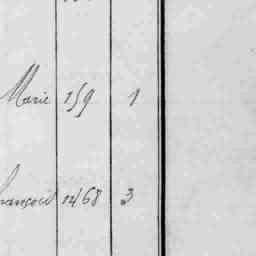 Marie 159 1
François 1468 3